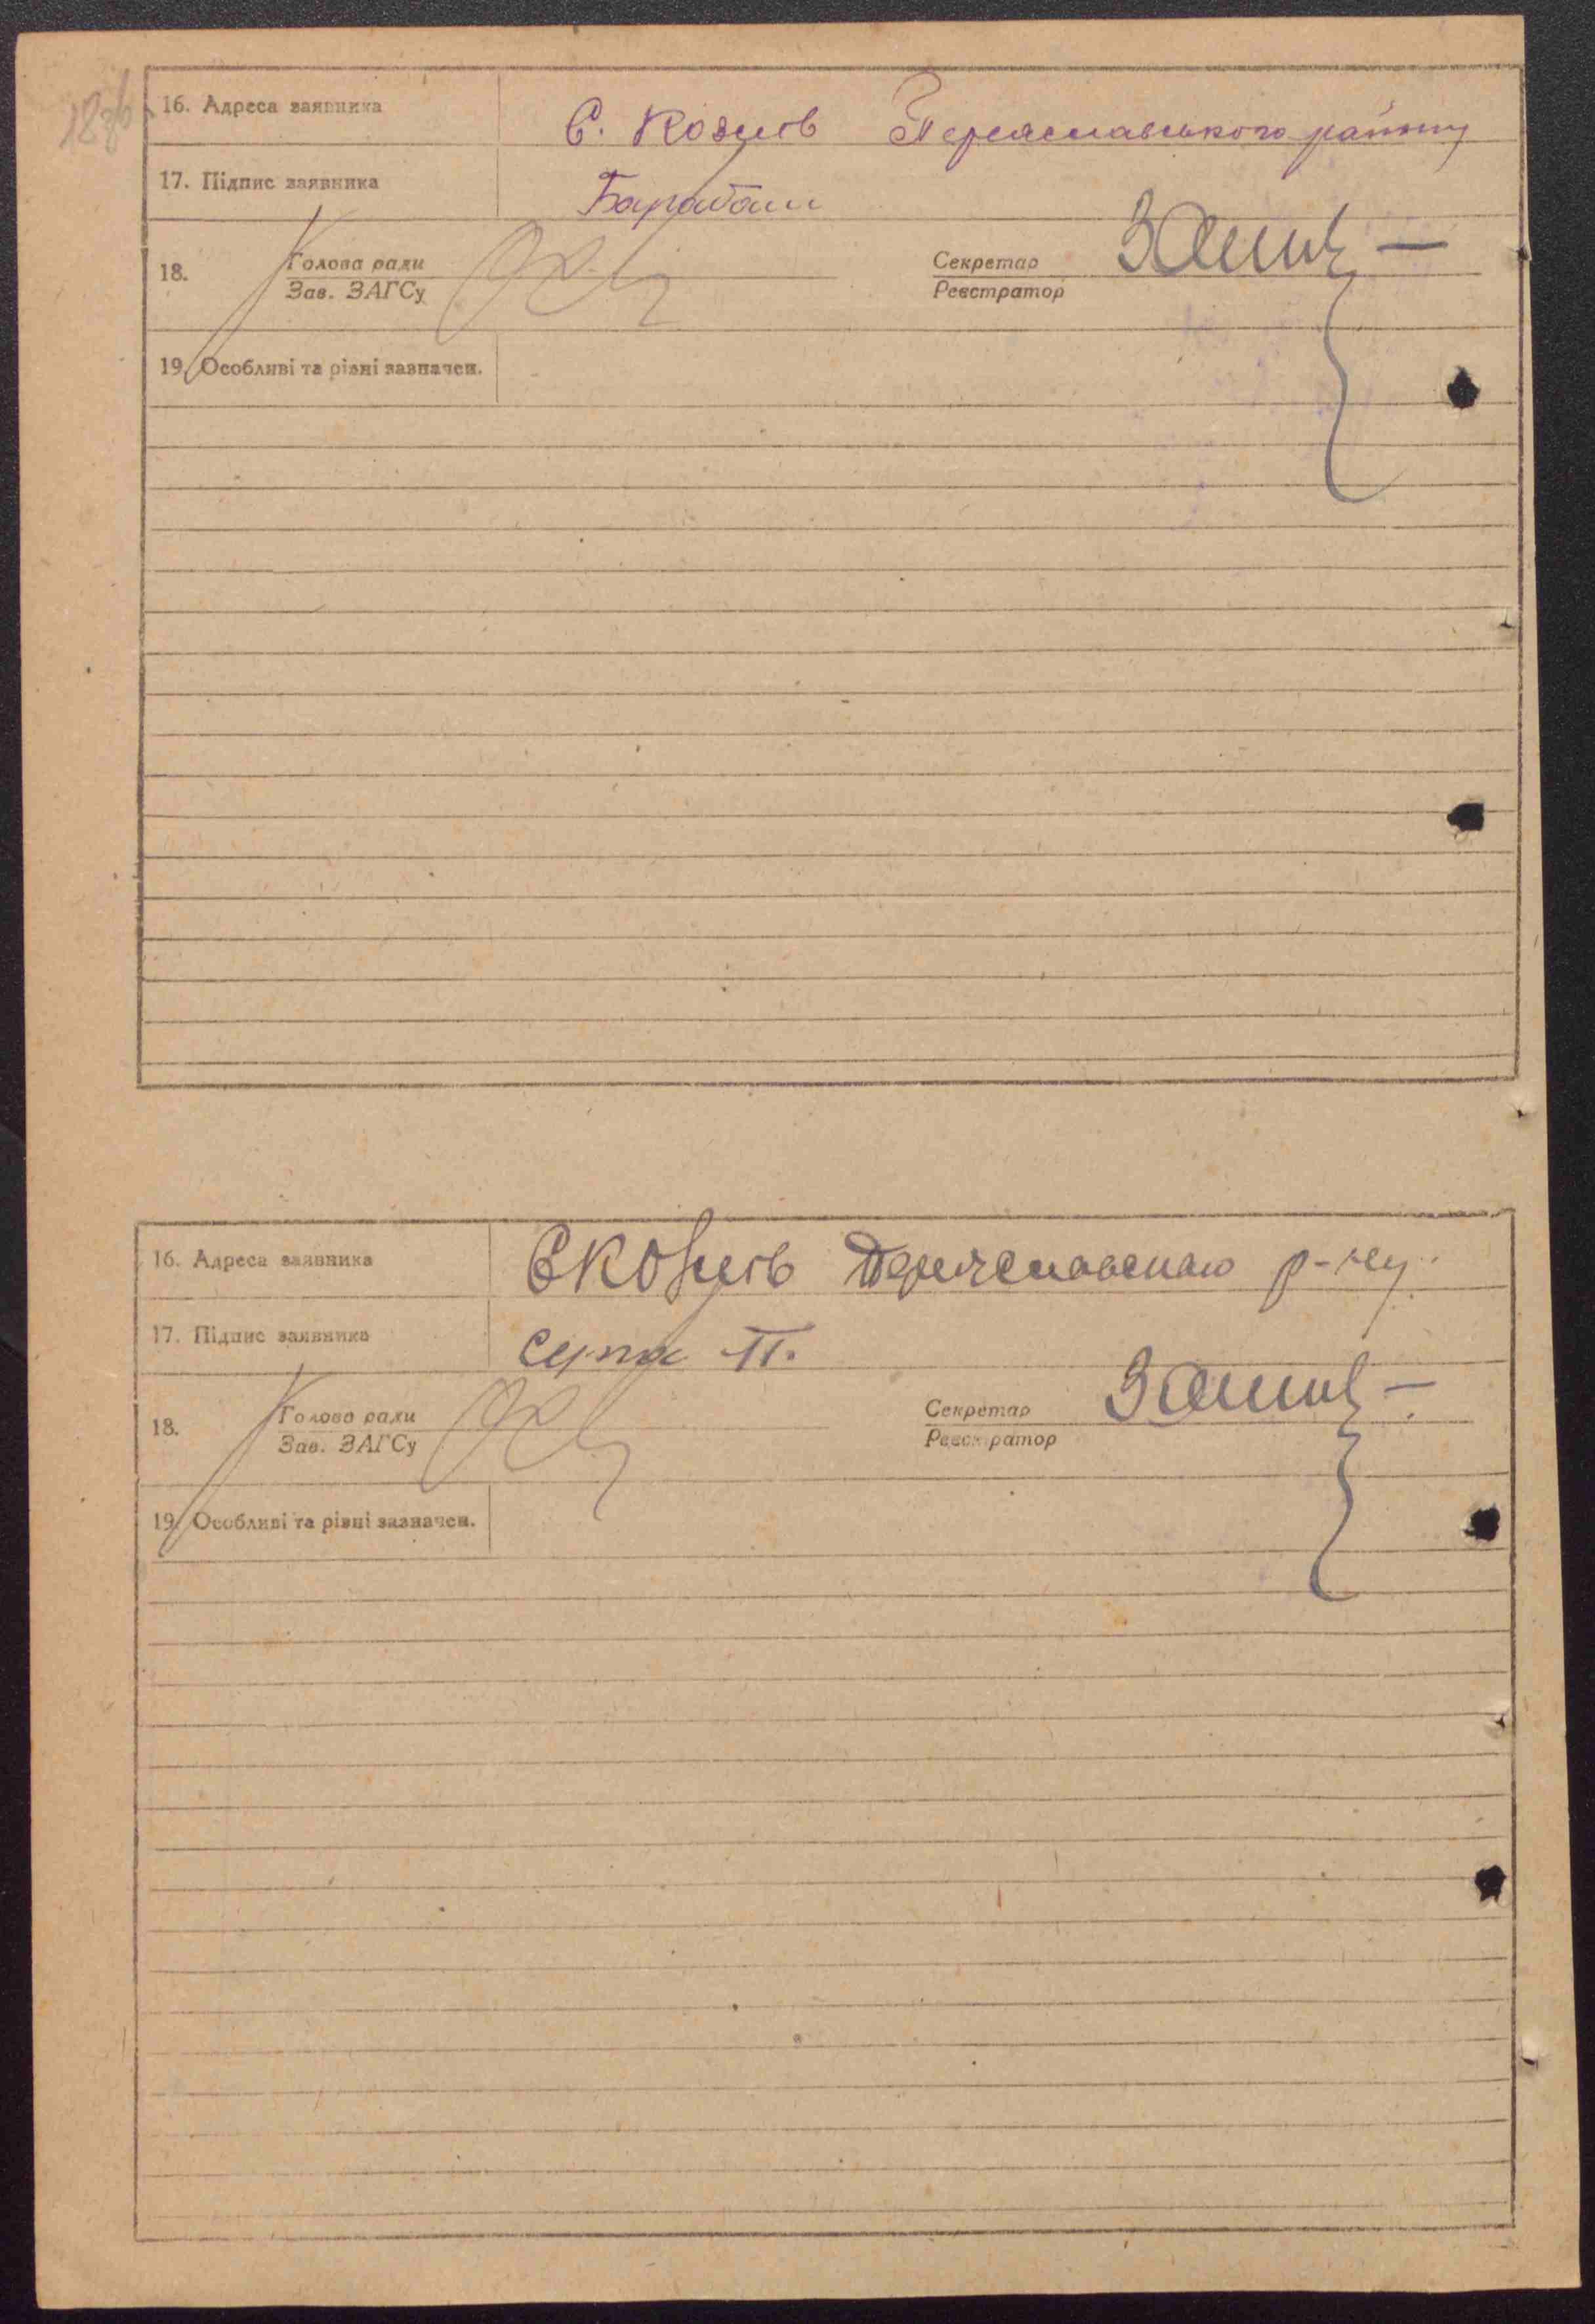 16. Адреса заявника С. Козинів Переяславського району
17. Підпис заявника Барабаш
18. Голова ради Секретар
Зав. ЗАГСу Реєстратор
19. Особливі та різні зазначен.
16. Адреса заявника С Козинів Переяславського р-ну.
17. Підпис заявника Супп П.
18. Голова ради Секретар
Зав. ЗАГСу Реєстратор
19. Особливі та різні зазначен.